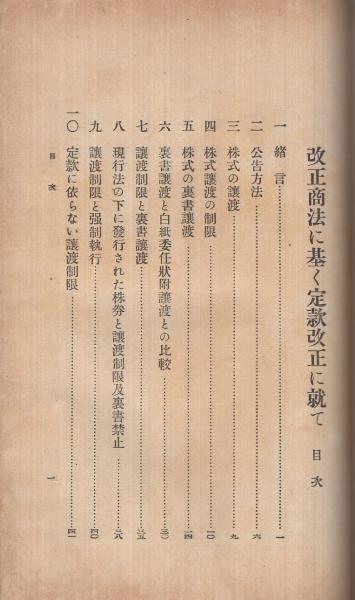 改正商法に基く定款改正に就て 目次
一 緒言……一
二 公告方法……六
三 株式の讓渡……九
四 株式讓渡の制限……一〇
五 株式の裏書讓渡……一四
六 裏書讓渡と白紙委任狀附讓渡との比較……三〇
七 讓渡制限と裏書讓渡……三五
八 現行法の下に發行された株劵と讓渡制限及裏書禁止……三八
九 讓渡制限と强制執行……四〇
一〇 定款に依らない讓渡制限……四一
目次 一